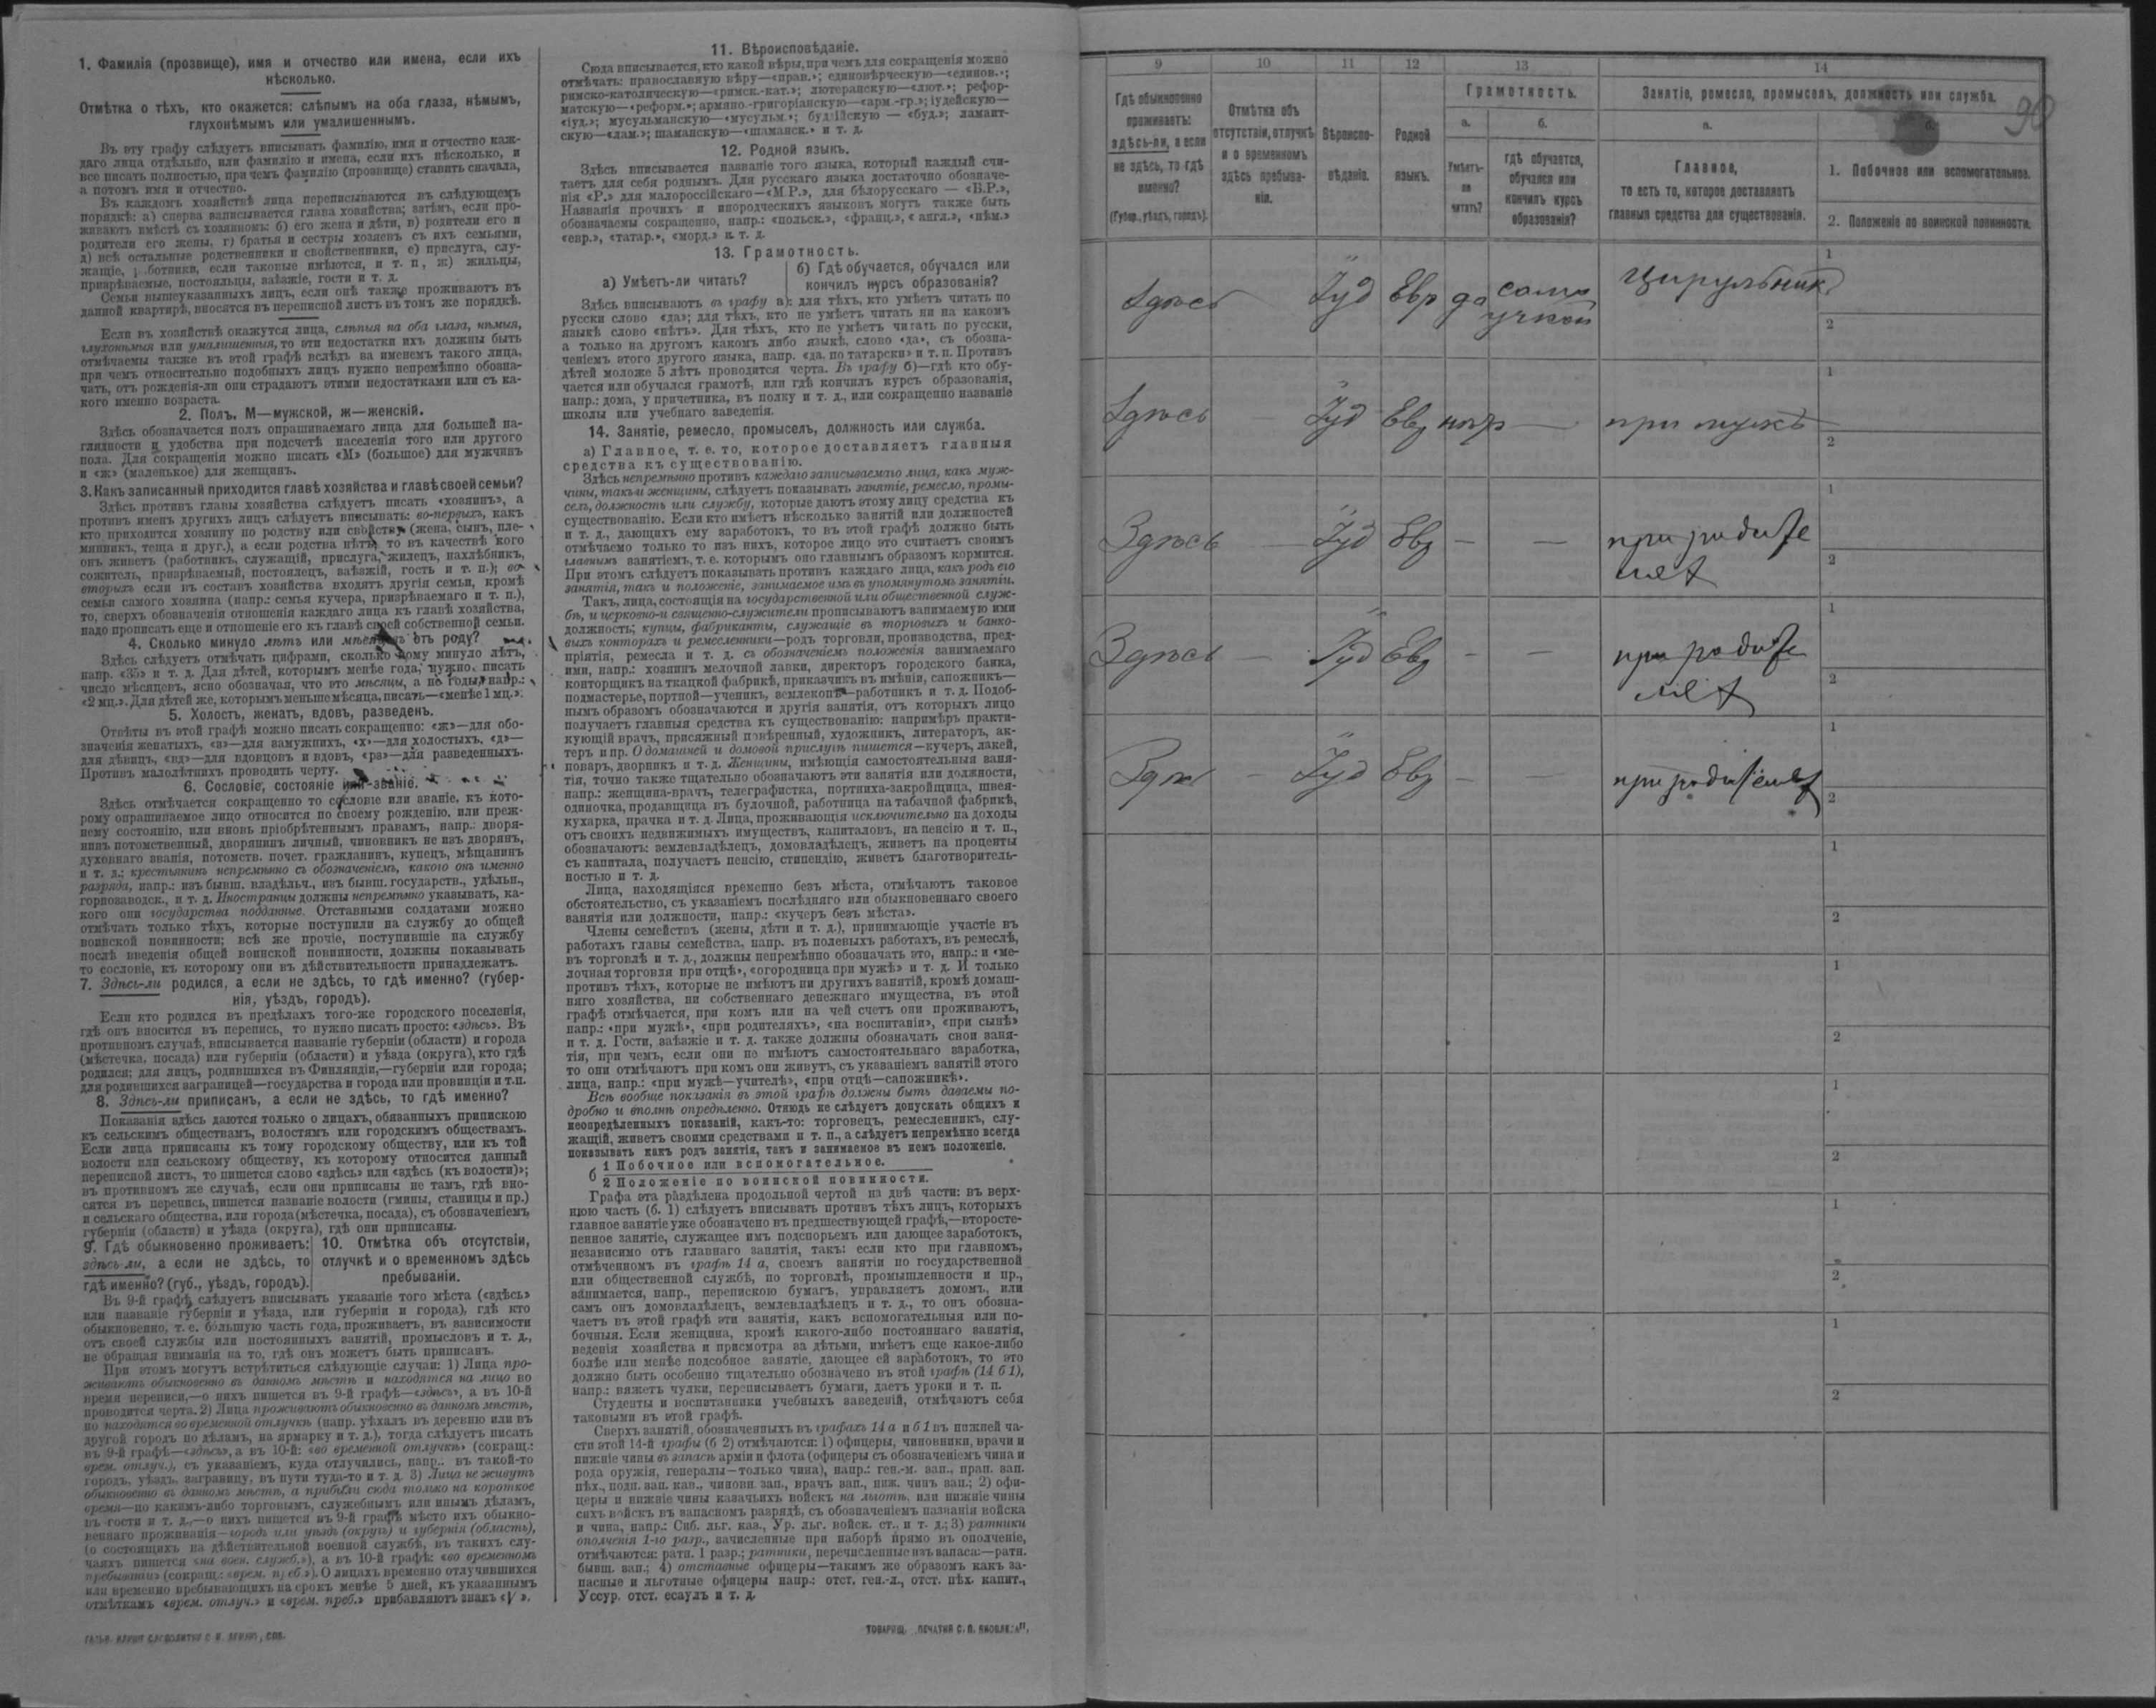 1. Фамилія (прозвище), имя и отчество или имена, если ихъ
нѣсколько.
Отмѣтка о тѣхъ, кто окажется: слѣпымъ на оба глаза, нѣмымъ,
глухонѣмымъ или умалишеннымъ.
Въ эту графу слѣдуетъ вписывать фамилію, имя и отчество каж-
даго лица отдѣльно, или фамилію и имена, если ихъ нѣсколько, и
все писать полностью, при чемъ фамилію (прозвище) ставить сначала,
а потомъ имя и отчество.
Въ каждомъ хозяйствѣ лица переписываются въ слѣдующемъ
порядкѣ: а) сперва записывается глава хозяйства; затѣмъ, если про-
живаютъ вмѣстѣ съ хозяиномъ: б) его жена и дѣти, в) родители его и
родители его жены, г) братья и сестры хозяевъ съ ихъ семьями,
д) всѣ остальные родственники и свойственники, е) прислуга, слу-
жащіе, работники, если таковые имѣются, и т. п., ж) жильцы,
призрѣваемые, постояльцы, заѣзжіе, гости и т. д.
Семьи вышеуказанныхъ лицъ, если онѣ также проживаютъ въ
данной квартирѣ, вносятся въ переписной листъ въ томъ же порядкѣ.
Если въ хозяйствѣ окажутся лица, слѣпыя на оба глаза, нѣмыя,
глухонѣмыя или умалишенныя, то эти недостатки ихъ должны быть
отмѣчаемы также въ этой графѣ вслѣдъ за именемъ такого лица,
при чемъ относительно подобныхъ лицъ нужно непремѣнно обозна-
чать, отъ рожденія-ли они страдаютъ этими недостатками или съ ка-
кого именно возраста.
2. Полъ. М—мужской, ж—женскій.
Здѣсь обозначается полъ опрашиваемаго лица для большей на-
глядности и удобства при подсчетѣ населенія того или другого
пола. Для сокращенія можно писать «М» (большое) для мужчинъ
и «ж» (маленькое) для женщинъ.
3. Какъ записанный приходится главѣ хозяйства и главѣ своей семьи?
Здѣсь противъ главы хозяйства слѣдуетъ писать «хозяинъ», а
противъ именъ другихъ лицъ слѣдуетъ вписывать: во-первыхъ, какъ
кто приходится хозяину по родству или свойству (жена, сынъ, пле-
мянникъ, теща и друг.), а если родства нѣтъ, то въ качествѣ кого
онъ живетъ (работникъ, служащій, прислуга, жилецъ, нахлѣбникъ,
сожитель, призрѣваемый, постоялецъ, заѣзжій, гость и т. п.); во-
вторыхъ если въ составъ хозяйства входятъ другія семьи, кромѣ
семьи самого хозяина (напр.: семья кучера, призрѣваемаго и т. п.),
то, сверхъ обозначенія отношенія каждаго лица къ главѣ хозяйства,
надо прописать еще и отношеніе его къ главѣ своей собственной семьи.
4. Сколько минуло лѣтъ или мѣсяцевъ отъ роду?
Здѣсь слѣдуетъ отмѣчать цифрами, сколько кому минуло лѣтъ,
напр. «35» и т. д. Для дѣтей, которымъ менѣе года, нужно писать
число мѣсяцевъ, ясно обозначая, что это мѣсяцы, а не годы, напр.:
«2 мц.». Для дѣтей же, которымъ меньше мѣсяца, писать—«менѣе 1 мц.».
5. Холостъ, женатъ, вдовъ, разведенъ.
Отвѣты въ этой графѣ можно писать сокращенно: «ж»—для обо-
значенія женатыхъ, «з»—для замужнихъ, «х»—для холостыхъ, «д»—
для дѣвицъ, «вд»—для вдовцовъ и вдовъ, «рз»—для разведенныхъ.
Противъ малолѣтнихъ проводить черту.
6. Сословіе, состояніе или званіе.
Здѣсь отмѣчается сокращенно то сословіе или званіе, къ кото-
рому опрашиваемое лицо относится по своему рожденію, или преж-
нему состоянію, или вновь пріобрѣтеннымъ правамъ, напр.: дворя-
нинъ потомственный, дворянинъ личный, чиновникъ не изъ дворянъ,
духовнаго званія, потомств. почет. гражданинъ, купецъ, мѣщанинъ
и т. д.; крестьянинъ непремѣнно съ обозначеніемъ, какого онъ именно
разряда, напр.: изъ бывш. владѣльч., изъ бывш. государств., удѣльн.,
горнозаводск., и т. д. Иностранцы должны непремѣнно указывать, ка-
кого они государства подданные. Отставными солдатами можно
отмѣчать только тѣхъ, которые поступили на службу до общей
воинской повинности; всѣ же прочіе, поступившіе на службу
послѣ введенія общей воинской повинности, должны показывать
то сословіе, къ которому они въ дѣйствительности принадлежатъ.
7. Здѣсь-ли родился, а если не здѣсь, то гдѣ именно? (губер-
нія, уѣздъ, городъ).
Если кто родился въ предѣлахъ того-же городского поселенія,
гдѣ онъ вносится въ перепись, то нужно писать просто: «здѣсь». Въ
противномъ случаѣ, вписывается названіе губерніи (области) и города
(мѣстечка, посада) или губерніи (области) и уѣзда (округа), кто гдѣ
родился; для лицъ, родившихся въ Финляндіи,—губерніи или города;
для родившихся заграницей—государства и города или провинціи и т.п.
8. Здѣсь-ли приписанъ, а если не здѣсь, то гдѣ именно?
Показанія здѣсь даются только о лицахъ, обязанныхъ припискою
къ сельскимъ обществамъ, волостямъ или городскимъ обществамъ.
Если лица приписаны къ тому городскому обществу, или къ той
волости или сельскому обществу, къ которому относится данный
переписной листъ, то пишется слово «здѣсь» или «здѣсь (къ волости)»;
въ противномъ же случаѣ, если они приписаны не тамъ, гдѣ вно-
сятся въ перепись, пишется названіе волости (гмины, станицы и пр.)
и сельскаго общества, или города (мѣстечка, посада), съ обозначеніемъ
губерніи (области) и уѣзда (округа), гдѣ они приписаны.
9. Гдѣ обыкновенно проживаетъ:
здѣсь-ли, а если не здѣсь, то
гдѣ именно? (губ., уѣздъ, городъ).
10. Отмѣтка объ отсутствіи,
отлучкѣ и о временномъ здѣсь
пребываніи.
Въ 9-й графѣ слѣдуетъ вписывать указаніе того мѣста («здѣсь»
или названіе губерніи и уѣзда, или губерніи и города), гдѣ кто
обыкновенно, т. е. большую часть года, проживаетъ, въ зависимости
отъ своей службы или постоянныхъ занятій, промысловъ и т. д.,
не обращая вниманія на то, гдѣ онъ можетъ быть приписанъ.
При этомъ могутъ встрѣтиться слѣдующіе случаи: 1) Лица про-
живаютъ обыкновенно въ данномъ мѣстѣ и находятся на лицо во
время переписи,—о нихъ пишется въ 9-й графѣ—«здѣсь», а въ 10-й
проводится черта. 2) Лица проживаютъ обыкновенно въ данномъ мѣстѣ,
но находятся во временной отлучкѣ (напр. уѣхалъ въ деревню или въ
другой городъ по дѣламъ, на ярмарку и т. д.), тогда слѣдуетъ писать
въ 9-й графѣ—«здѣсь», а въ 10-й: «во временной отлучкѣ» (сокращ.:
врем. отлуч.), съ указаніемъ, куда отлучились, напр.: въ такой-то
городъ, уѣздъ, заграницу, въ пути туда-то и т. д. 3) Лица не живутъ
обыкновенно въ данномъ мѣстѣ, а прибыли сюда только на короткое
время—по какимъ-либо торговымъ, служебнымъ или инымъ дѣламъ,
въ гости и т. д.,—о нихъ пишется въ 9-й графѣ мѣсто ихъ обыкно-
веннаго проживанія—городъ или уѣздъ (округъ) и губернія (область),
(о состоящихъ на дѣйствительной военной службѣ, въ такихъ слу-
чаяхъ пишется «на воен. служб.»), а въ 10-й графѣ: «во временномъ
пребываніи» (сокращ.: «врем. преб.»). О лицахъ временно отлучившихся
или временно пребывающихъ на срокъ менѣе 5 дней, къ указаннымъ
отмѣткамъ «врем. отлуч.» и «врем. преб.» прибавляютъ знакъ «V».
11. Вѣроисповѣданіе.
Сюда вписывается, кто какой вѣры, при чемъ для сокращенія можно
отмѣчать: православную вѣру—«прав.»; единовѣрческую—«единов.»;
римско-католическую—«римск.-кат.»; лютеранскую—«лют.»; рефор-
матскую—«реформ.»; армяно-григоріанскую—«арм.-гр.»; іудейскую—
«іуд.»; мусульманскую—«мусульм.»; буддійскую — «буд.»; ламаит-
скую—«лам.»; шаманскую—«шаманск.» и т. д.
12. Родной языкъ.
Здѣсь вписывается названіе того языка, который каждый счи-
таетъ для себя роднымъ. Для русскаго языка достаточно обозначе-
нія «Р.» для малороссійскаго—«М.Р.», для бѣлорусскаго — «Б.Р.»,
Названія прочихъ и инородческихъ языковъ могутъ также быть
обозначаемы сокращенно, напр.: «польск.», «франц.», «англ.», «нѣм.»
«евр.», «татар.», «морд.» и т. д.
13. Грамотность.
а) Умѣетъ-ли читать?
б) Гдѣ обучается, обучался или
кончилъ курсъ образованія?
Здѣсь вписываютъ въ графу а): для тѣхъ, кто умѣетъ читать по
русски слово «да»; для тѣхъ, кто не умѣетъ читать ни на какомъ
языкѣ слово «нѣтъ». Для тѣхъ, кто не умѣетъ читать по русски,
а только на другомъ какомъ либо языкѣ, слово «да», съ обозна-
ченіемъ этого другого языка, напр. «да, по татарски» и т. п. Противъ
дѣтей моложе 5 лѣтъ проводится черта. Въ графу б)—гдѣ кто обу-
чается или обучался грамотѣ, или гдѣ кончилъ курсъ образованія,
напр.: дома, у причетника, въ полку и т. д., или сокращенно названіе
школы или учебнаго заведенія.
14. Занятіе, ремесло, промыселъ, должность или служба.
а) Главное, т. е. то, которое доставляетъ главныя
средства къ существованію.
Здѣсь непремѣнно противъ каждаго записываемаго лица, какъ муж-
чины, такъ и женщины, слѣдуетъ показывать занятіе, ремесло, промы-
селъ, должность или службу, которые даютъ этому лицу средства къ
существованію. Если кто имѣетъ нѣсколько занятій или должностей
и т. д., дающихъ ему заработокъ, то въ этой графѣ должно быть
отмѣчаемо только то изъ нихъ, которое лицо это считаетъ своимъ
главнымъ занятіемъ, т. е. которымъ оно главнымъ образомъ кормится.
При этомъ слѣдуетъ показывать противъ каждаго лица, какъ родъ его
занятія, такъ и положеніе, занимаемое имъ въ упомянутомъ занятіи.
Такъ, лица, состоящія на государственной или общественной служ-
бѣ, и церковно-и священно-служители прописываютъ занимаемую ими
должность; купцы, фабриканты, служащіе въ торговыхъ и банко-
выхъ конторахъ и ремесленники—родъ торговли, производства, пред-
пріятія, ремесла и т. д. съ обозначеніемъ положенія занимаемаго
ими, напр.: хозяинъ мелочной лавки, директоръ городского банка,
конторщикъ на ткацкой фабрикѣ, приказчикъ въ имѣніи, сапожникъ—
подмастерье, портной—ученикъ, землекопъ—работникъ и т. д. Подоб-
нымъ образомъ обозначаются и другія занятія, отъ которыхъ лицо
получаетъ главныя средства къ существованію: напримѣръ практи-
кующій врачъ, присяжный повѣренный, художникъ, литераторъ, ак-
теръ и пр. О домашней и домовой прислугѣ пишется—кучеръ, лакей,
поваръ, дворникъ и т. д. Женщины, имѣющія самостоятельныя заня-
тія, точно также тщательно обозначаютъ эти занятія или должности,
напр.: женщина-врачъ, телеграфистка, портниха-закройщица, швея-
одиночка, продавщица въ булочной, работница на табачной фабрикѣ,
кухарка, прачка и т. д. Лица, проживающія исключительно на доходы
отъ своихъ недвижимыхъ имуществъ, капиталовъ, на пенсію и т. п.,
обозначаютъ: землевладѣлецъ, домовладѣлецъ, живетъ на проценты
съ капитала, получаетъ пенсію, стипендію, живетъ благотворитель-
ностью и т. д.
Лица, находящіяся временно безъ мѣста, отмѣчаютъ таковое
обстоятельство, съ указаніемъ послѣдняго или обыкновеннаго своего
занятія или должности, напр.: «кучеръ безъ мѣста».
Члены семействъ (жены, дѣти и т. д.), принимающіе участіе въ
работахъ главы семейства, напр. въ полевыхъ работахъ, въ ремеслѣ,
въ торговлѣ и т. д., должны непремѣнно обозначать это, напр.: и «ме-
лочная торговля при отцѣ», «огородница при мужѣ» и т. д. И только
противъ тѣхъ, которые не имѣютъ ни другихъ занятій, кромѣ домаш-
няго хозяйства, ни собственнаго денежнаго имущества, въ этой
графѣ отмѣчается, при комъ или на чей счетъ они проживаютъ,
напр.: «при мужѣ», «при родителяхъ», «на воспитаніи», «при сынѣ»
и т. д. Гости, заѣзжіе и т. д. также должны обозначать свои заня-
тія, при чемъ, если они не имѣютъ самостоятельнаго заработка,
то они отмѣчаютъ при комъ они живутъ, съ указаніемъ занятій этого
лица, напр.: «при мужѣ—учителѣ», «при отцѣ—сапожникѣ».
Всѣ вообще показанія въ этой графѣ должны быть даваемы по-
дробно и вполнѣ опредѣленно. Отнюдь не слѣдуетъ допускать общихъ и
неопредѣленныхъ показаній, какъ-то: торговецъ, ремесленникъ, слу-
жащій, живетъ своими средствами и т. п., а слѣдуетъ непремѣнно всегда
показывать какъ родъ занятія, такъ и занимаемое въ немъ положеніе.
б 1 Побочное или вспомогательное.
2 Положеніе по воинской повинности.
Графа эта раздѣлена продольной чертой на двѣ части: въ верх-
нюю часть (б. 1) слѣдуетъ вписывать противъ тѣхъ лицъ, которыхъ
главное занятіе уже обозначено въ предшествующей графѣ,—второсте-
пенное занятіе, служащее имъ подспорьемъ или дающее заработокъ,
независимо отъ главнаго занятія, такъ: если кто при главномъ,
отмѣченномъ въ графѣ 14 а, своемъ занятіи по государственной
или общественной службѣ, по торговлѣ, промышленности и пр.,
занимается, напр., перепискою бумагъ, управляетъ домомъ, или
самъ онъ домовладѣлецъ, землевладѣлецъ и т. д., то онъ обозна-
чаетъ въ этой графѣ эти занятія, какъ вспомогательныя или по-
бочныя. Если женщина, кромѣ какого-либо постояннаго занятія,
веденія хозяйства и присмотра за дѣтьми, имѣетъ еще какое-либо
болѣе или менѣе подсобное занятіе, дающее ей заработокъ, то это
должно быть особенно тщательно обозначено въ этой графѣ (14 б 1),
напр.: вяжетъ чулки, переписываетъ бумаги, даетъ уроки и т. п.
Студенты и воспитанники учебныхъ заведеній, отмѣчаютъ себя
таковыми въ этой графѣ.
Сверхъ занятій, обозначенныхъ въ графахъ 14 а и б 1 въ нижней ча-
сти этой 14-й графы (б 2) отмѣчаются: 1) офицеры, чиновники, врачи и
нижніе чины въ запасѣ арміи и флота (офицеры съ обозначеніемъ чина и
рода оружія, генералы—только чина), напр.: ген.-м. зап., прап. зап.
пѣх., подп. зап. кав., чиновн. зап., врачъ зап., ниж. чинъ зап.; 2) офи-
церы и нижніе чины казачьихъ войскъ на льготѣ, или нижніе чины
сихъ войскъ въ запасномъ разрядѣ, съ обозначеніемъ названія войска
и чина, напр.: Сиб. льг. каз., Ур. льг. войск. ст., и т. д.; 3) ратники
ополченія 1-го разр., зачисленные при наборѣ прямо въ ополченіе,
отмѣчаются: ратн. 1 разр.; ратники, перечисленные изъ запаса:—ратн.
бывш. зап.; 4) отставные офицеры—такимъ же образомъ какъ за-
пасные и льготные офицеры напр.: отст. ген.-л., отст. пѣх. капит.,
Уссур. отст. есаулъ и т. д.
ТОВАРИЩ. „ПЕЧАТНЯ С. П. ЯКОВЛЕВА".
90
9 10 11 12 13 14
Гдѣ обыкновенно
проживаетъ:
здѣсь-ли, а если
не здѣсь, то гдѣ
именно?
(Губер., уѣздъ, городъ).
Отмѣтка объ
отсутствіи, отлучкѣ
и о временномъ
здѣсь пребыва-
ніи.
Вѣроиспо-
вѣданіе.
Родной
языкъ.
Грамотность.
а.
Умѣетъ-
ли
читать?
б.
гдѣ обучается,
обучался или
кончилъ курсъ
образованія?
Занятіе, ремесло, промыселъ, должность или служба.
а.
Главное,
то есть то, которое доставляетъ
главныя средства для существованія.
б.
1. Побочное или вспомогательное.
2. Положеніе по воинской повинности.
Здѣсь Іуд Евр да само Цирульникъ 1
учкой 2
Здѣсь — Іуд Евр нѣтъ — при мужѣ 1
2
Здѣсь — Іуд Евр — — при родите 1
лях 2
Здѣсь — Іуд Евр — — при родите 1
лях 2
Здѣс — Іуд Евр — — при родителях 1
2
1
2
1
2
1
2
1
2
1
2